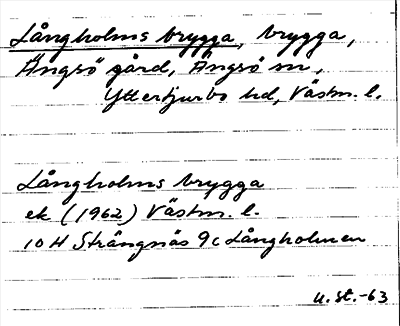 Långholms brygga, brygga,
Ängsö gård, Ängsö sn,
Yttertjurbo hd, Västm. l.
Långholms brygga
ek (1962) Västm. l.
10H Strängnäs 9c Långholmen
U.St.-63